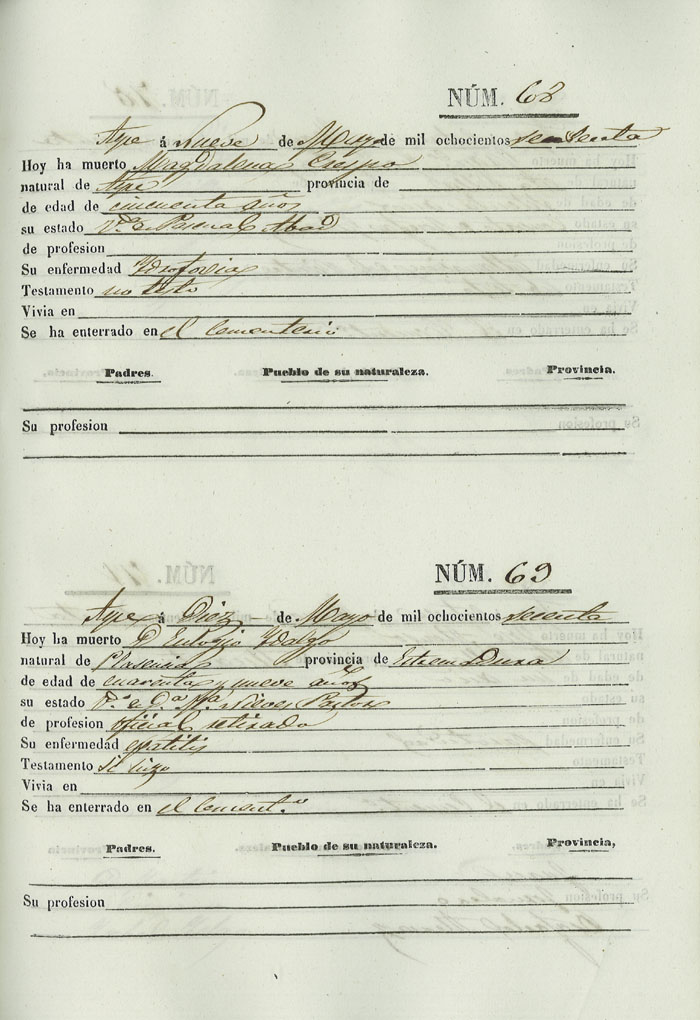 NÚM. 68
Aspe á Nueve de Mayo de mil ochocientos sesenta
Hoy ha muerto Magdalena Crespo
natural de Aspe provincia de
de edad de cincuenta años
su estado V.ª de Pascual Abad
de profesion
Su enfermedad Ydrofovia
Testamento no testo
Vivia en
Se ha enterrado en el cementerio
Padres. Pueblo de su naturaleza. Provincia.
Su profesion
NÚM. 69
Aspe á Diez de Mayo de mil ochocientos sesenta
Hoy ha muerto D. Eulogio Ydalgo
natural de Plasencia provincia de Estremadura
de edad de cuarenta y nueve años
su estado de D.ª M.ª Nieves Pastor
de profesion oficial retirado
Su enfermedad epatitis
Testamento si
Vivia en
Se ha enterrado en el Cement.º
Padres. Pueblo de su naturaleza. Provincia,
Su profesion